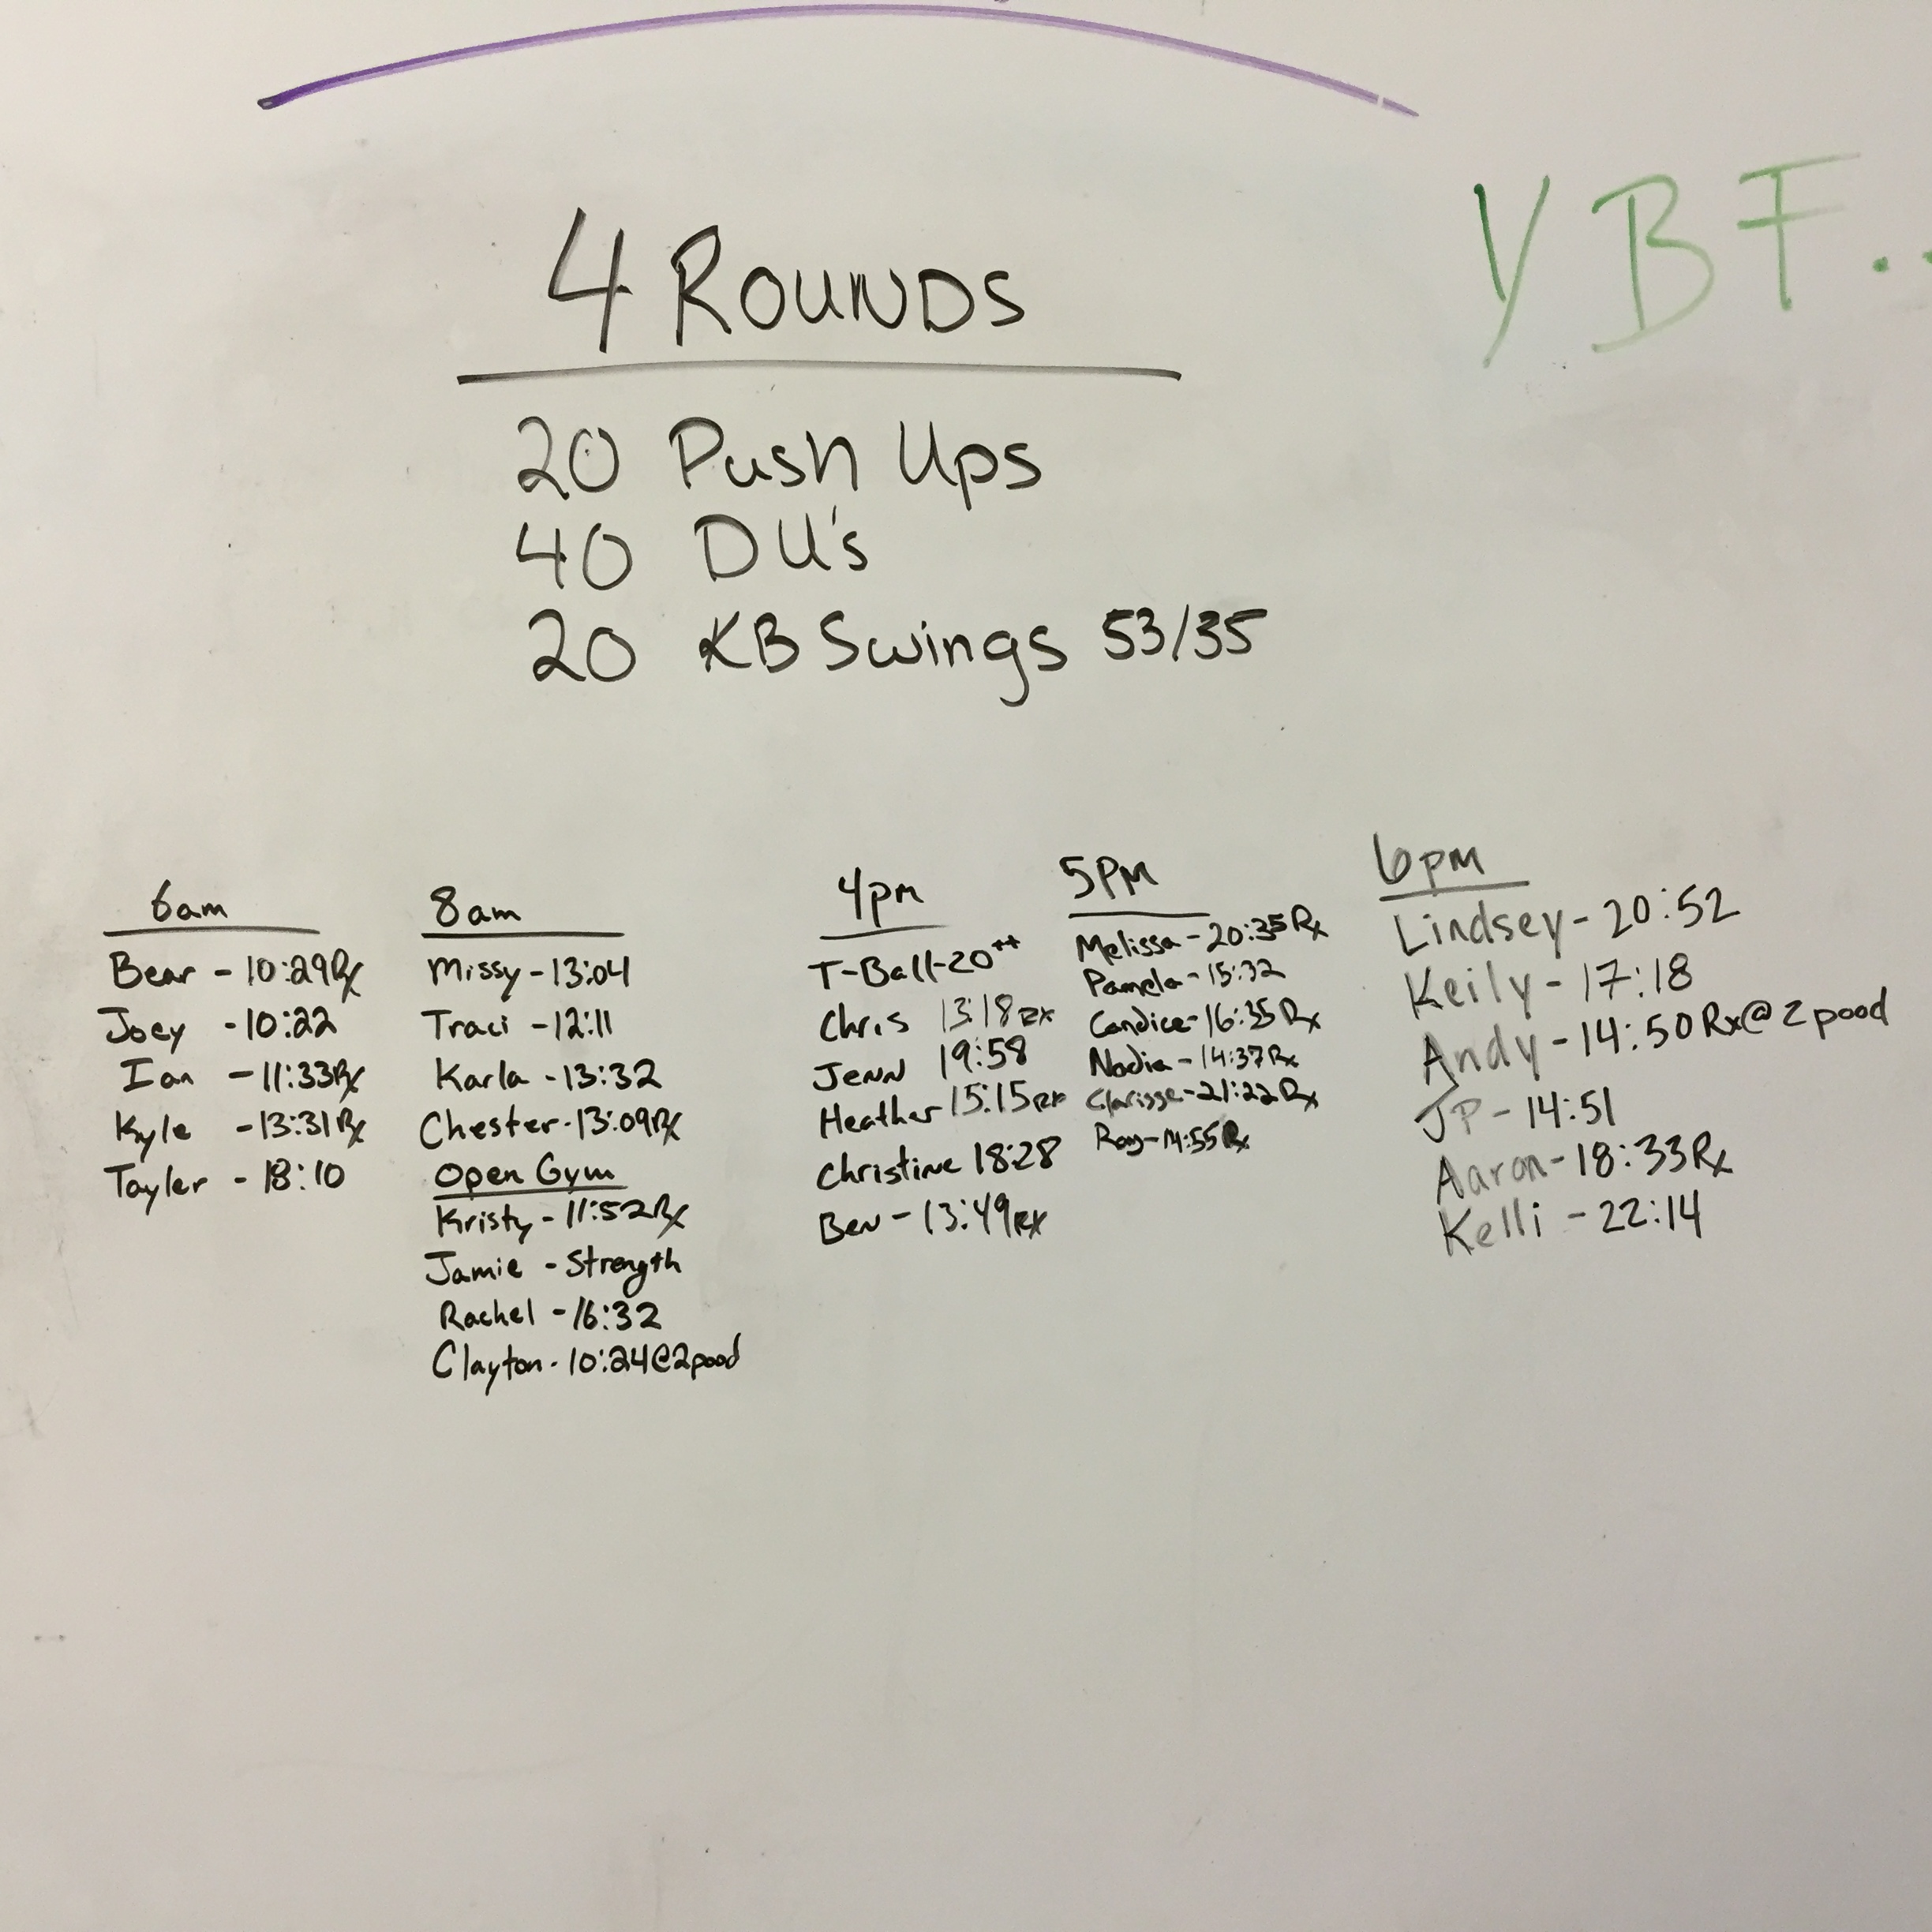 YBF..
4 ROUNDS
20 Push Ups
40 DU's
20 KB Swings 53/35
6am
Bear - 10:29 Rx
Joey - 10:22
Ian - 11:33 Rx
Kyle - 13:31 Rx
Tayler - 18:10
8am
Missy - 13:04
Traci - 12:11
Karla - 13:32
Chester - 13:09 Rx
Open Gym
Kristy - 11:52 Rx
Jamie - Strength
Rachel - 16:32
Clayton - 10:24 @ 2pood
4pm
T-Ball - 20++
Chris 13:18 RX
JENN 19:58
Heather 15:15 RX
Christine 18:28
Ben - 13:49 RX
5PM
Melissa - 20:35 Rx
Pamela - 15:32
Candice - 16:35 Rx
Nadia - 14:37 Rx
Clarisse - 21:22 Rx
Ray - 14:55 Rx
6pm
Lindsey - 20:52
Keily - 17:18
Andy - 14:50 Rx @ 2 pood
JP - 14:51
Aaron - 18:33 Rx
Kelli - 22:14